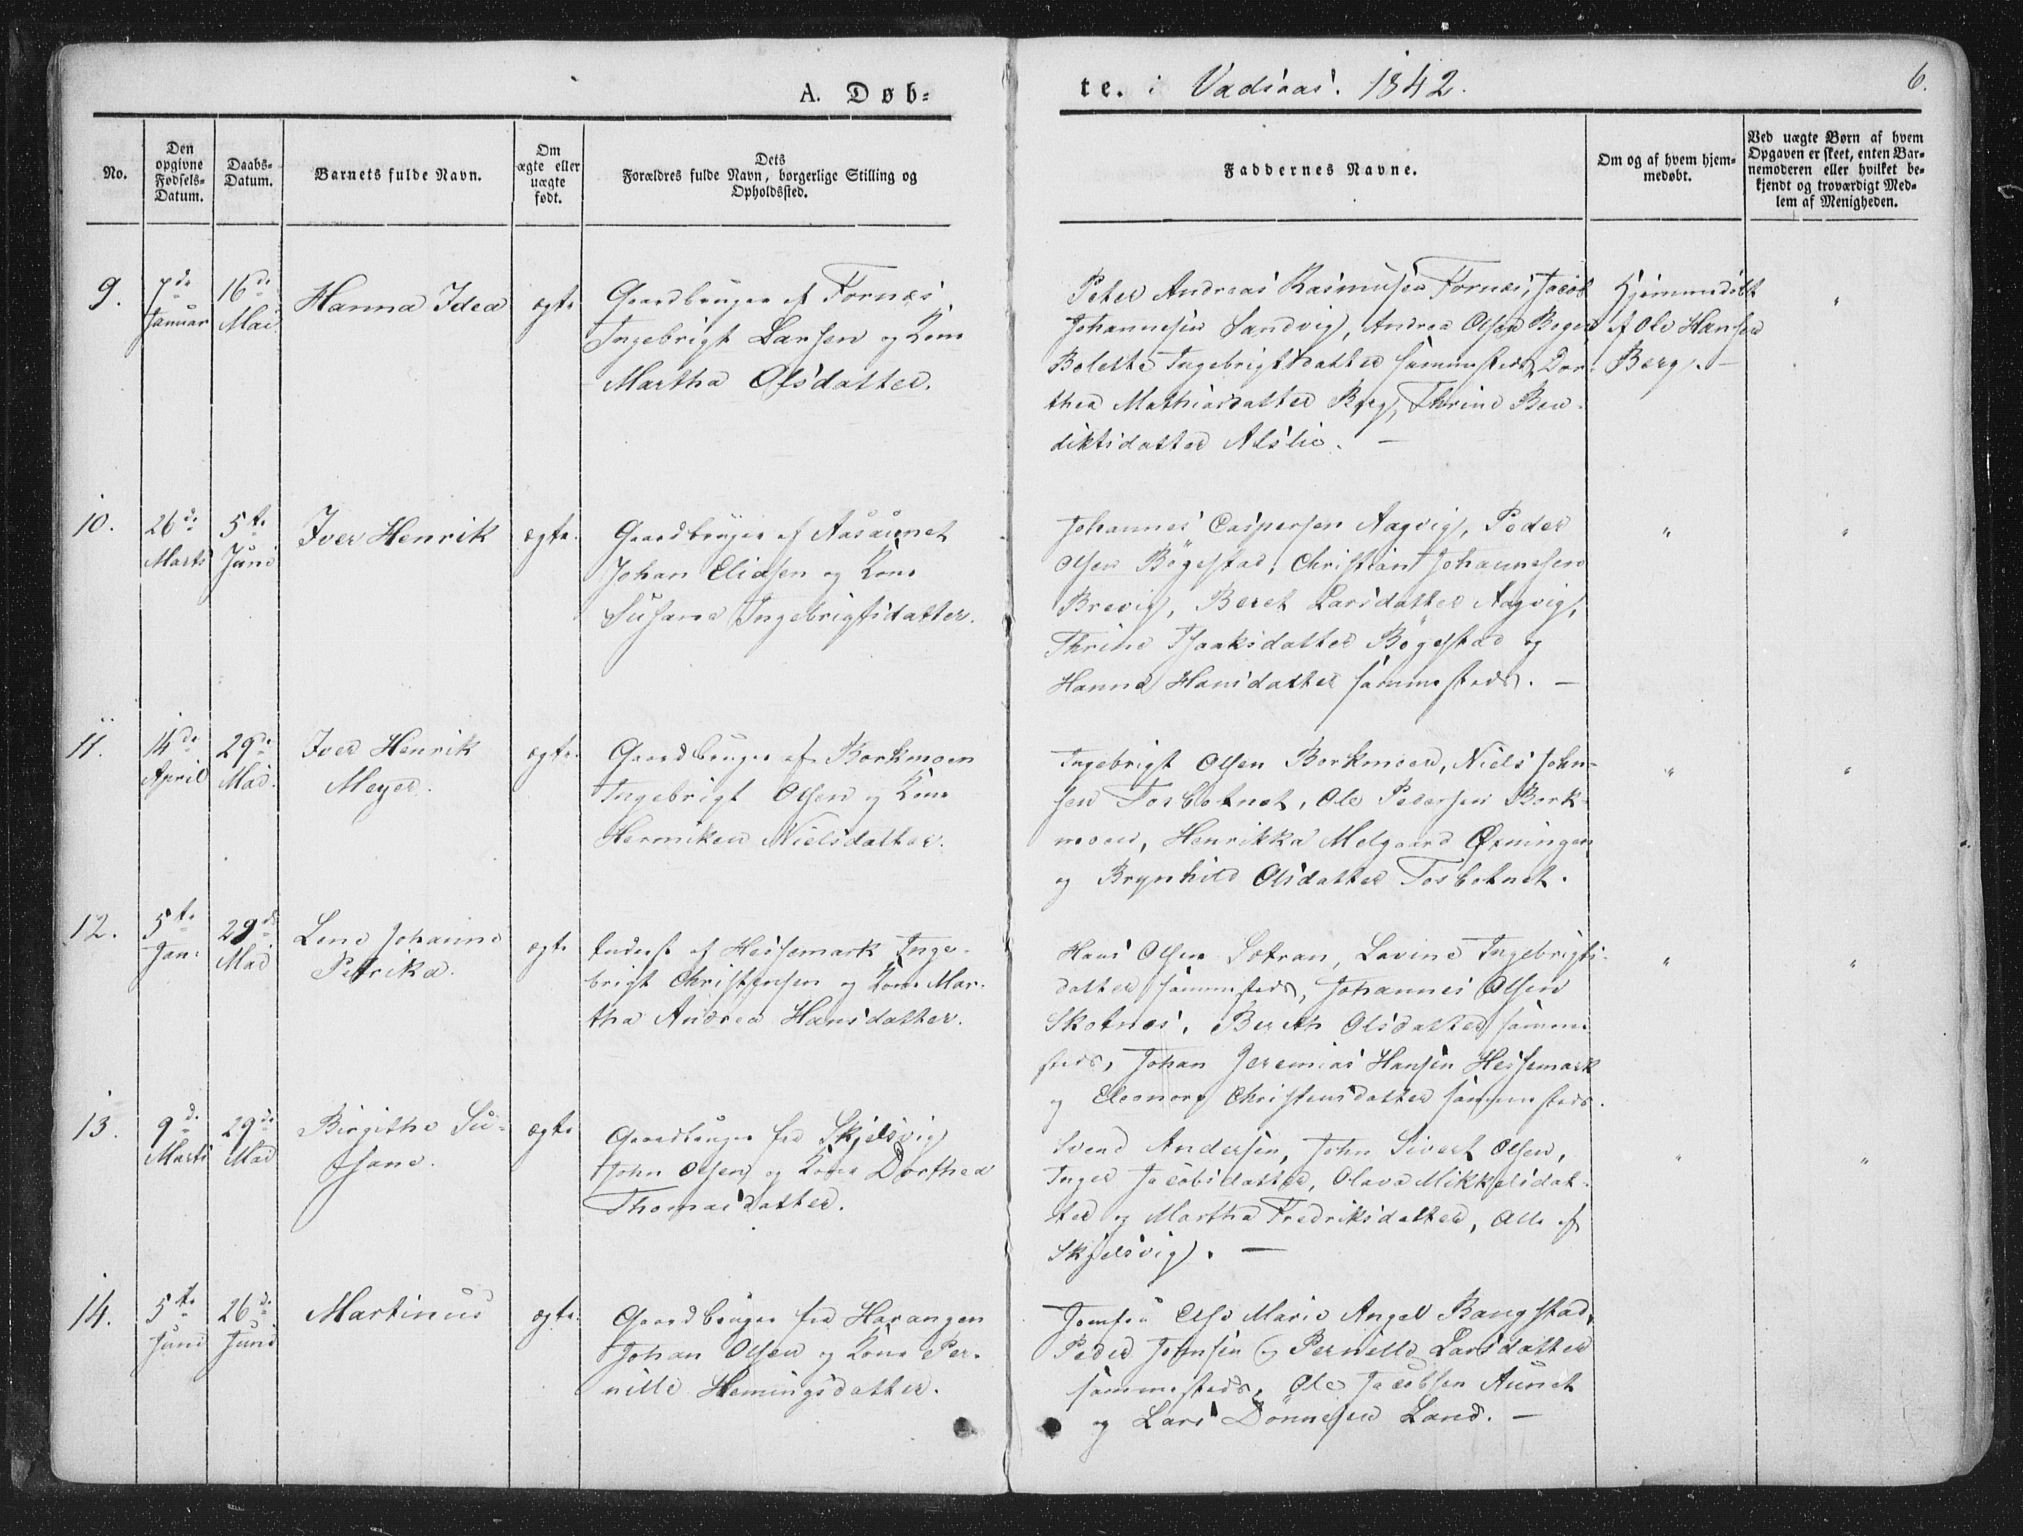 A. Døb-
te. i Vadsaas. 1842.
6.
No.
Den opgivne Fødsels-Datum.
Daabs-Datum.
Barnets fulde Navn.
Om ægte eller uægte født.
Dets Forældres fulde Navn, borgerlige Stilling og Opholdssted.
Faddernes Navne.
Om og af hvem hjemmedøbt.
Ved uægte Børn af hvem Opgaven er skeet, enten Barnemoderen eller hvilket bekjendt og troværdigt Medlem af Menigheden.
9.
7de Januar
16de Mai
Hanna Idea
ægte
Gaardbruger af Fornæs
Ingebrigt Larsen og Kone
Martha Olsdatter.
Peter Andreas Rasmusen Fornæs, Jacob
Johannesen Sandvig, Andrea Olsen
Bolette Ingebrigtsdatter sammesteds, Dor-
thea Mathiasdatter Berg, Thrine Ben-
diktsdatter Aslie. —
Hjemmedøbt
af Ole Hansen
Berg. —
"
10.
26de Marts
5te Juni
Iver Henrik
ægte.
Gaardbruger af Aasaunet
Johan Eliasen og Kone
Susane Ingebrigtsdatter.
Johannes Caspersen Aagvig, Peder
Olsen Bøgestad, Christian Johannesen
Brevig, Beret Larsdatter Aagvig,
Thrine Isaaksdatter Bøgestad og
Hanna Hansdatter sammesteds. —
"
"
11.
14de April
29de Mai.
Iver Henrik
Meyer.
ægte.
Gaardbruger af Borkmoen
Ingebrigt Olsen og Kone
Herniken Nielsdatter.
Ingebrigt Olsen Borkmoen, Niels John-
sen Tosbotnet, Ole Pedersen Bork-
moen, Henrikka Melgaard Øxningen
og Brynhild Olsdatter Tosbotnet.
"
"
12.
5te Jan:
29de Mai
Lene Johanna
Petrika.
ægte
Inderst af Heisemark Inge-
brigt Christensen og Kone Mar-
tha Andrea Hansdatter.
Hans Olsen Sotran, Lavine Ingebrigts-
datter sammesteds, Johannes Olsen
Skotnes, Bereth Olsdatter samme-
steds, Johan Jeremias Hansen Heisemark
og Eleonora Christensdatter sammesteds.
"
"
13.
9de Marts
29de Mai
Birgithe Su-
sane.
ægte
Gaardbruger fra Skjelsvig
John Olsen og Kone Dorthea
Thomasdatter.
Svend Andersen, John Sivert Olsen,
Inger Jacobsdatter, Olava Mikkelsdat-
ter og Martha Fredriksdatter, Alle af
Skjelsvig. —
"
"
14.
5te Juni
26de Juni
Martinus
ægte.
Gaardbruger fra Harangen
Johan Olsen og Kone Per-
nille Hemingsdatter.
Jomfru Else Marie Angel Bangstad,
Peder Jonsen og Pernille Larsdatter
sammesteds, Ole Jacobsen Aunet
og Lars Dønnesen Land. —